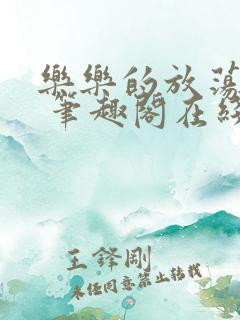 樂樂的放蕩
筆趣閣在線
王鋒剛
未經同意禁止轉載